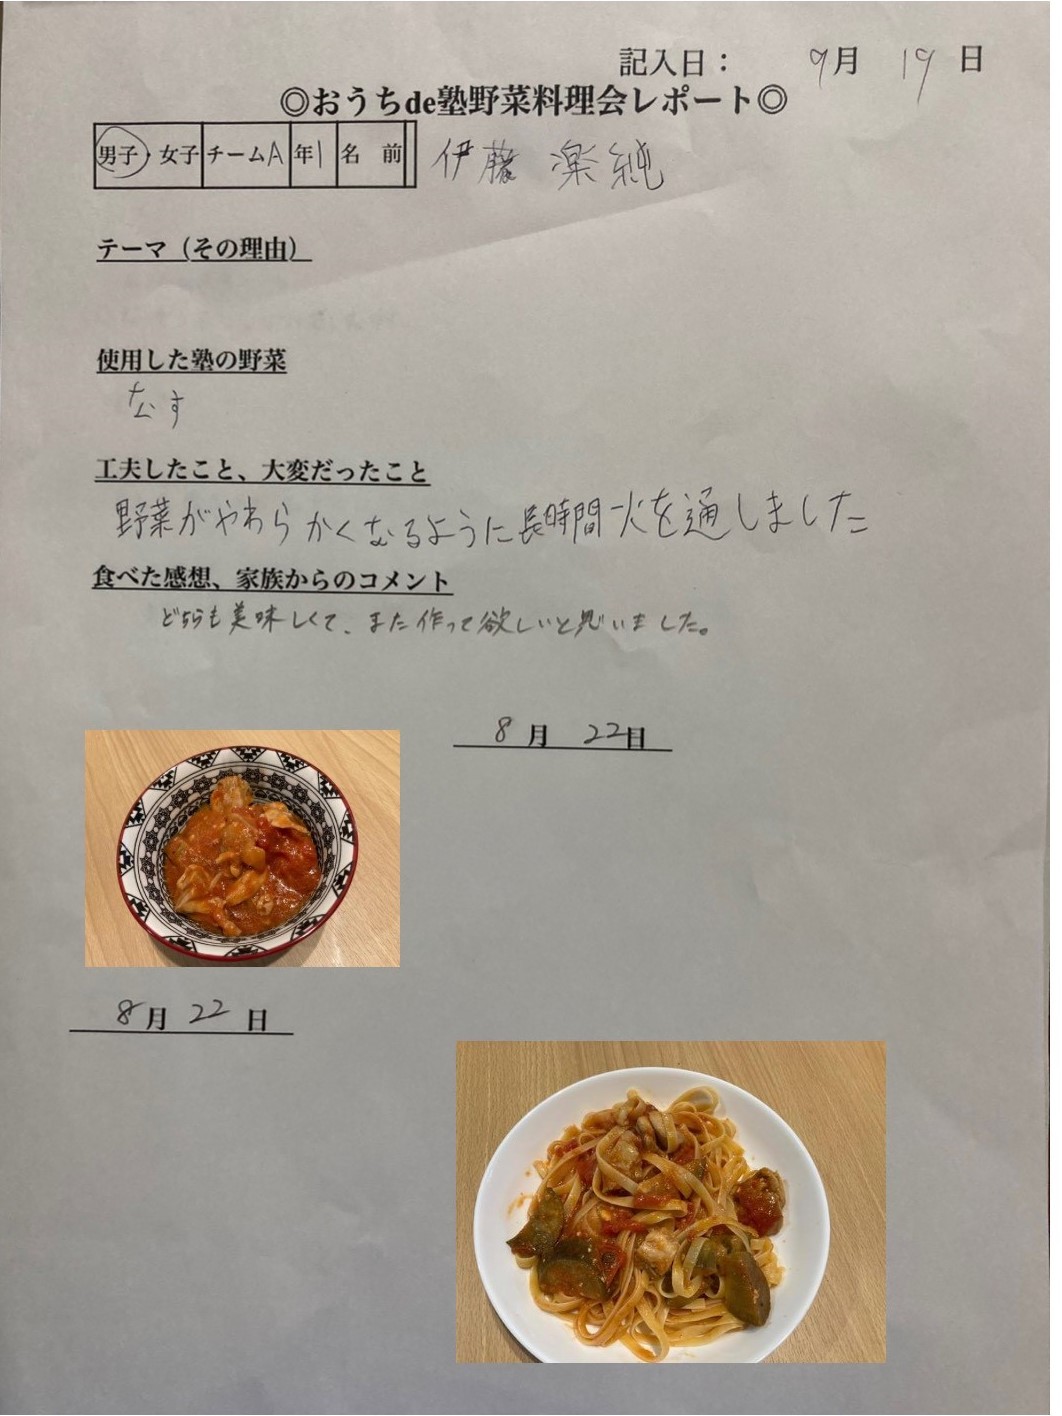 記入日： 9月 19日
◎おうちde塾野菜料理会レポート◎
男子・女子 チームA 年1 名 前 伊藤 楽純
テーマ（その理由）
使用した塾の野菜
なす
工夫したこと、大変だったこと
野菜がやわらかくなるように長時間火を通しました
食べた感想、家族からのコメント
どちらも美味しくて、また作って欲しいと思いました。
8月 22日
8月 22日